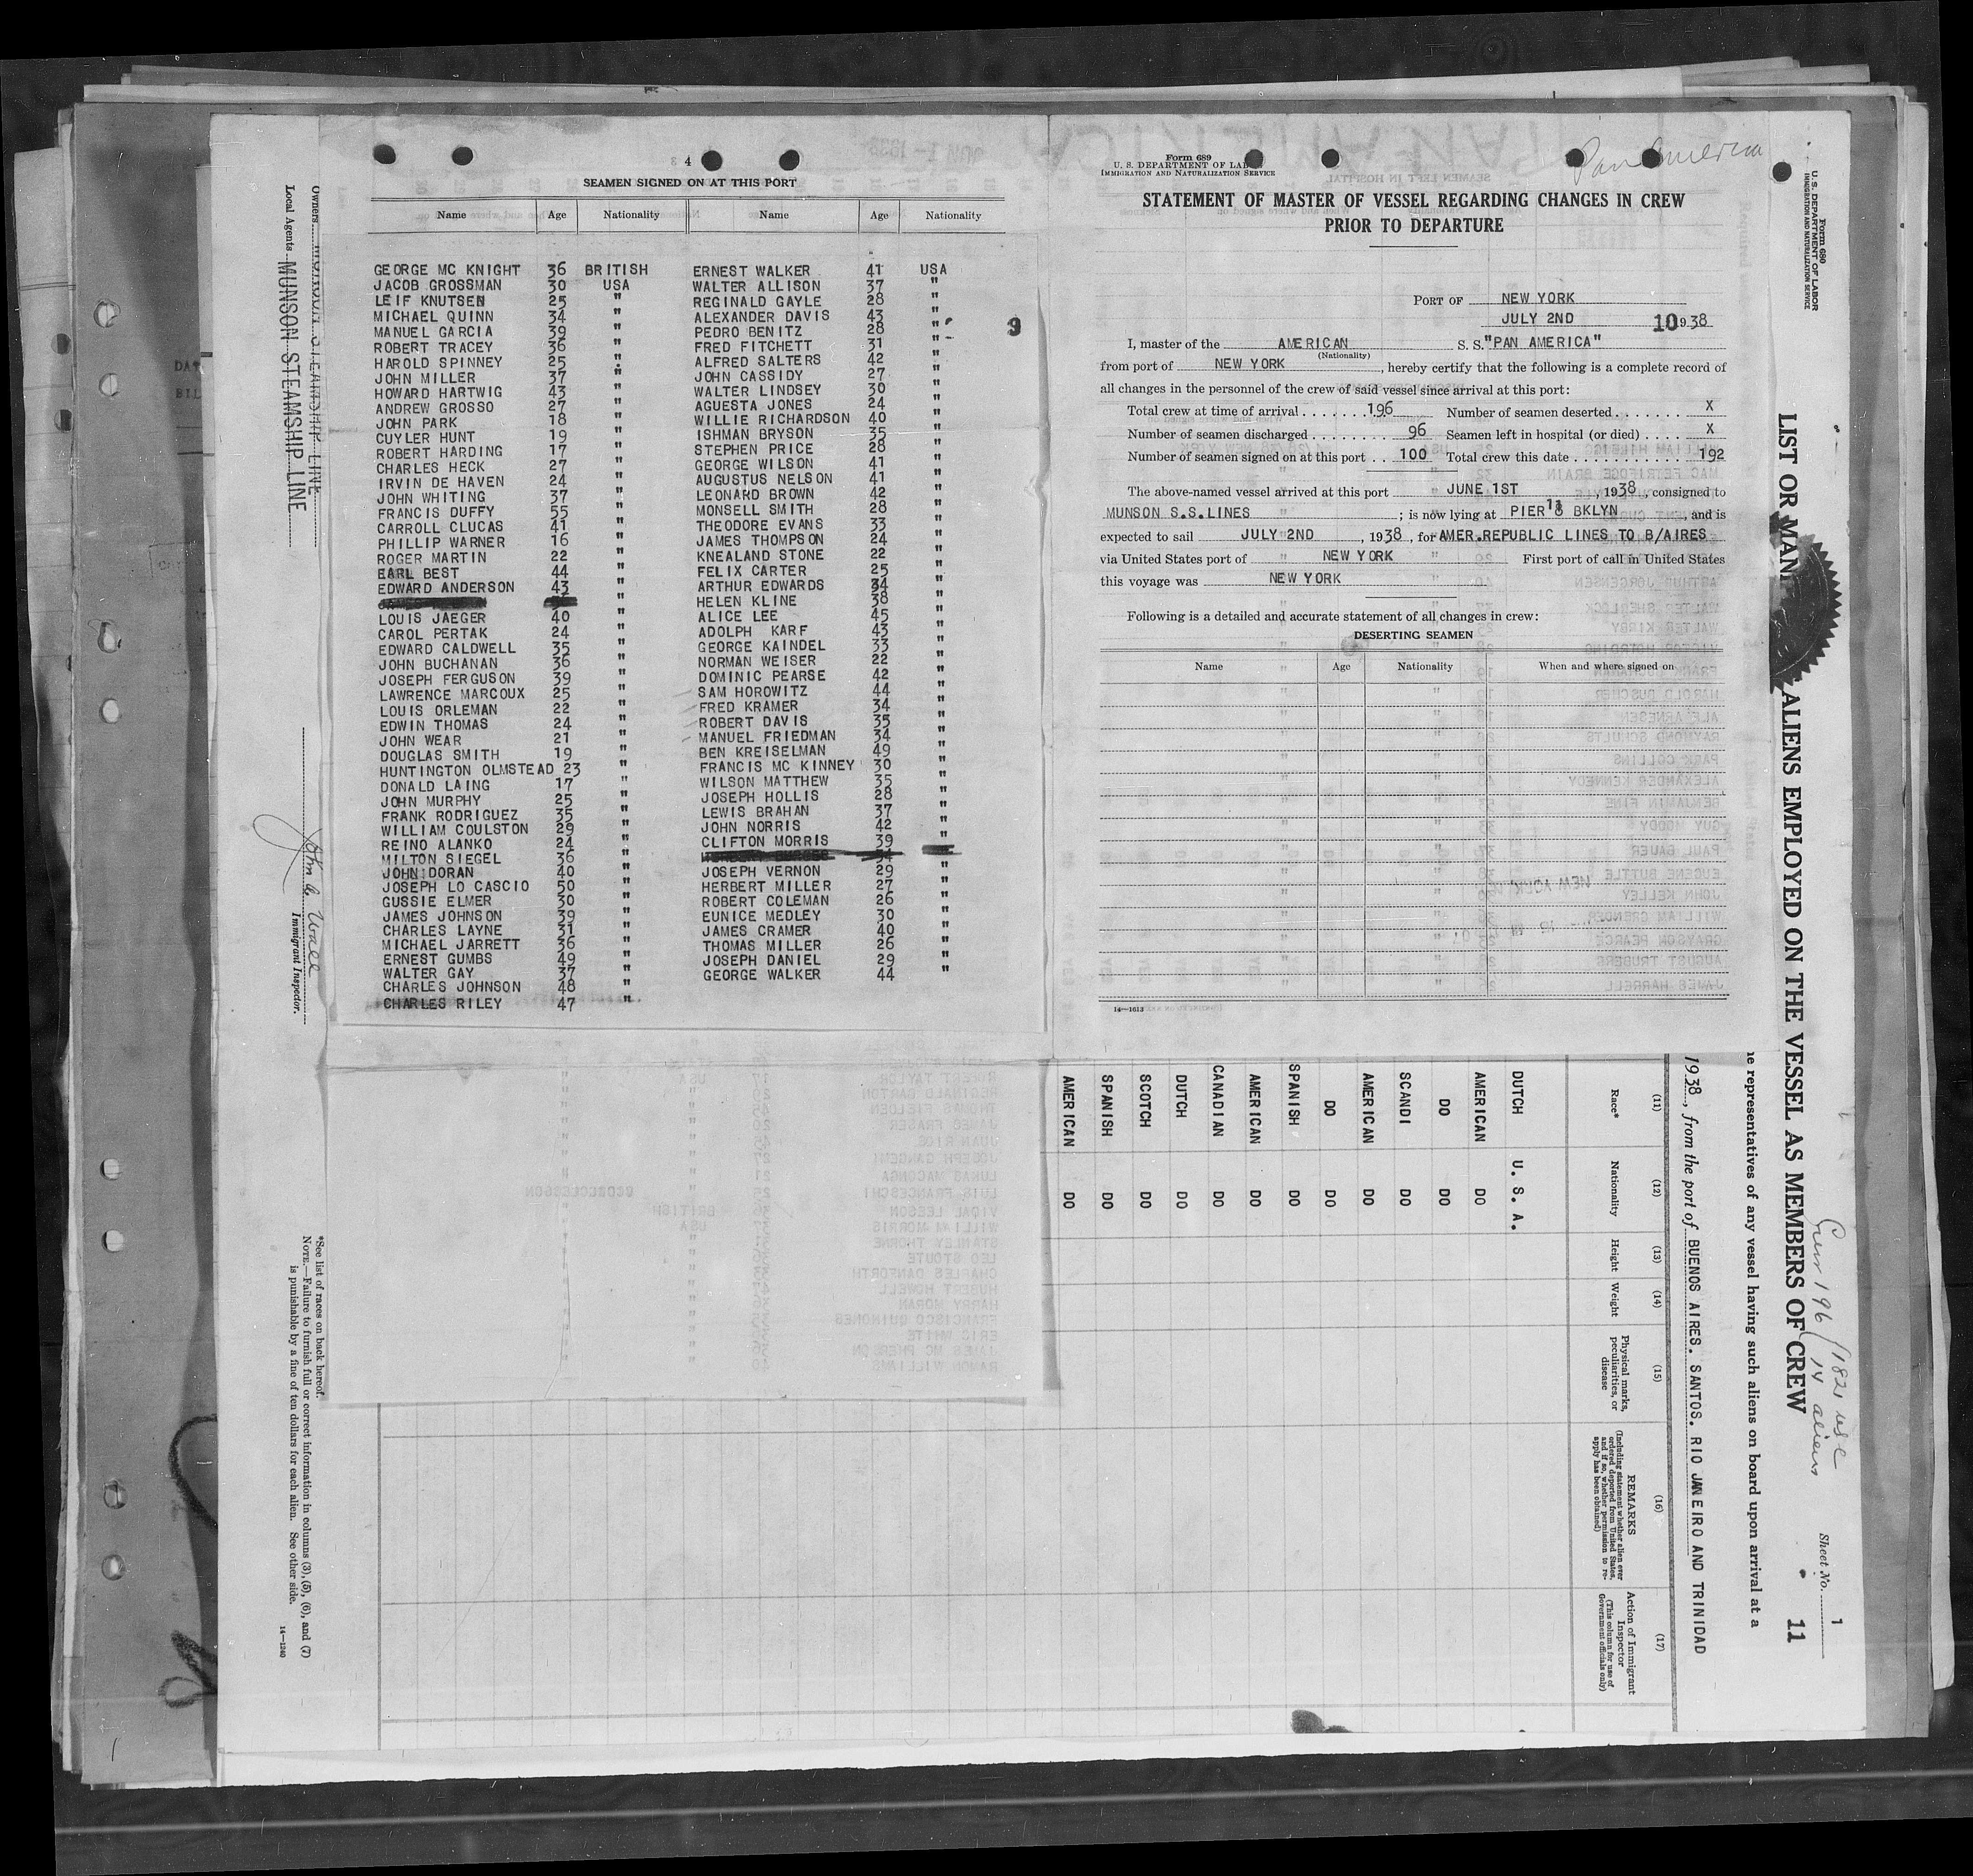 4
SEAMEN SIGNED ON AT THIS PORT
Name Age Nationality Name Age Nationality
GEORGE MC KNIGHT 36 BRITISH ERNEST WALKER 41 USA
JACOB GROSSMAN 30 USA WALTER ALLISON 37 "
LEIF KNUTSEN 25 " REGINALD GAYLE 28 "
MICHAEL QUINN 34 " ALEXANDER DAVIS 43 "
MANUEL GARCIA 39 " PEDRO BENITZ 28 "
ROBERT TRACEY 36 " FRED FITCHETT 31 "
HAROLD SPINNEY 25 " ALFRED SALTERS 42 "
JOHN MILLER 37 " JOHN CASSIDY 27 "
HOWARD HARTWIG 43 " WALTER LINDSEY 30 "
ANDREW GROSSO 27 " AGUESTA JONES 24 "
JOHN PARK 18 " WILLIE RICHARDSON 40 "
CUYLER HUNT 19 " ISHMAN BRYSON 35 "
ROBERT HARDING 17 " STEPHEN PRICE 28 "
CHARLES HECK 27 " GEORGE WILSON 41 "
IRVIN DE HAVEN 24 " AUGUSTUS NELSON 41 "
JOHN WHITING 37 " LEONARD BROWN 42 "
FRANCIS DUFFY 55 " MONSELL SMITH 28 "
CARROLL CLUCAS 41 " THEODORE EVANS 33 "
PHILLIP WARNER 16 " JAMES THOMPSON 24 "
ROGER MARTIN 22 " KNEALAND STONE 22 "
EARL BEST 44 " FELIX CARTER 25 "
EDWARD ANDERSON 43 " ARTHUR EDWARDS 34 "
HELEN KLINE 38 "
LOUIS JAEGER 40 " ALICE LEE 45 "
CAROL PERTAK 24 " ADOLPH KARF 43 "
EDWARD CALDWELL 35 " GEORGE KAINDEL 33 "
JOHN BUCHANAN 36 " NORMAN WEISER 22 "
JOSEPH FERGUSON 39 " DOMINIC PEARSE 42 "
LAWRENCE MARCOUX 25 " SAM HOROWITZ 44 "
LOUIS ORLEMAN 22 " FRED KRAMER 34 "
EDWIN THOMAS 24 " ROBERT DAVIS 35 "
JOHN WEAR 21 " MANUEL FRIEDMAN 34 "
DOUGLAS SMITH 19 " BEN KREISELMAN 49 "
HUNTINGTON OLMSTEAD 23 " FRANCIS MC KINNEY 30 "
DONALD LAING 17 " WILSON MATTHEW 35 "
JOHN MURPHY 25 " JOSEPH HOLLIS 28 "
FRANK RODRIGUEZ 35 " LEWIS BRAHAN 37 "
WILLIAM COULSTON 29 " JOHN NORRIS 42 "
REINO ALANKO 24 " CLIFTON MORRIS 39 "
MILTON SIEGEL 36 "
JOHN DORAN 40 " JOSEPH VERNON 29 "
JOSEPH LO CASCIO 50 " HERBERT MILLER 27 "
GUSSIE ELMER 30 " ROBERT COLEMAN 26 "
JAMES JOHNSON 39 " EUNICE MEDLEY 30 "
CHARLES LAYNE 31 " JAMES CRAMER 40 "
MICHAEL JARRETT 36 " THOMAS MILLER 26 "
ERNEST GUMBS 49 " JOSEPH DANIEL 29 "
WALTER GAY 37 " GEORGE WALKER 44 "
CHARLES JOHNSON 48
CHARLES RILEY 47 "
9
Form 689
U. S. DEPARTMENT OF LABOR
IMMIGRATION AND NATURALIZATION SERVICE
Pan America
STATEMENT OF MASTER OF VESSEL REGARDING CHANGES IN CREW
PRIOR TO DEPARTURE
PORT OF NEW YORK
JULY 2ND 10 1938
I, master of the AMERICAN S. S. "PAN AMERICA"
(Nationality)
from port of NEW YORK, hereby certify that the following is a complete record of
all changes in the personnel of the crew of said vessel since arrival at this port:
Total crew at time of arrival . . . . . . . 196 Number of seamen deserted . . . . . . . X
Number of seamen discharged . . . . . . . . 96 Seamen left in hospital (or died) . . . . X
Number of seamen signed on at this port . . 100 Total crew this date . . . . . . . . . . . 192
The above-named vessel arrived at this port JUNE 1ST, 1938, consigned to
MUNSON S.S.LINES; is now lying at PIER 18 BKLYN, and is
expected to sail JULY 2ND, 1938, for AMER.REPUBLIC LINES TO B/AIRES
via United States port of NEW YORK First port of call in United States
this voyage was NEW YORK
Following is a detailed and accurate statement of all changes in crew:
DESERTING SEAMEN
Name Age Nationality When and where signed on
14—1613
Form 680
U. S. DEPARTMENT OF LABOR
IMMIGRATION AND NATURALIZATION SERVICE
LIST OR MANI ALIENS EMPLOYED ON THE VESSEL AS MEMBERS OF CREW
Crew 196 / 182 usc
14 aliens
Sheet No. 1
11
he representatives of any vessel having such aliens on board upon arrival at a
1938, from the port of BUENOS AIRES. SANTOS. RIO JANEIRO AND TRINIDAD
(11) (12) (13) (14) (15) (16) (17)
Race* Nationality Height Weight
Physical marks, peculiarities, or disease
REMARKS
(Including statement whether alien ever ordered deported from United States, and if so, whether permission to reapply has been obtained)
Action of Immigrant Inspector
(This column for use of Government officials only)
DUTCH U. S. A.
AMERICAN DO
DO DO
SCANDI DO
AMERICAN DO
DO DO
SPANISH DO
AMERICAN DO
CANADIAN DO
DUTCH DO
SCOTCH DO
SPANISH DO
AMERICAN DO
Owners
Local Agents MUNSON STEAMSHIP LINE
John C Wall
Immigrant Inspector.
*See list of races on back hereof.
NOTE.—Failure to furnish full or correct information in columns (3), (5), (6), and (7)
is punishable by a fine of ten dollars for each alien. See other side.
14—1240